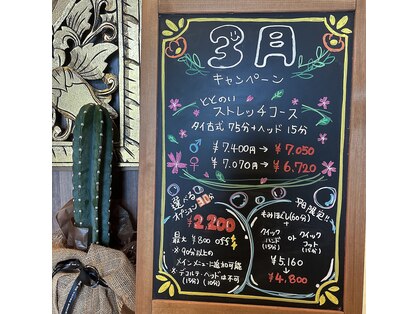 3月
キャンペーン
ととのい
ストレッチコース
タイ古式 75分+ヘッド 15分
♂ ¥7.400円→¥7.050
♀ ¥7.070円→¥6.720
選べる
オプション30分
¥2,200
最大 ¥800 off
※90分以上の
メインメニューに追加可能
※デコルテ・ヘッドは不可
(15分) (10分)
平日限定!!
もみほぐし(60分)
+
クイック or クイック
ハンド フット
(15分) (15分)
¥5,160
↓
¥4,800